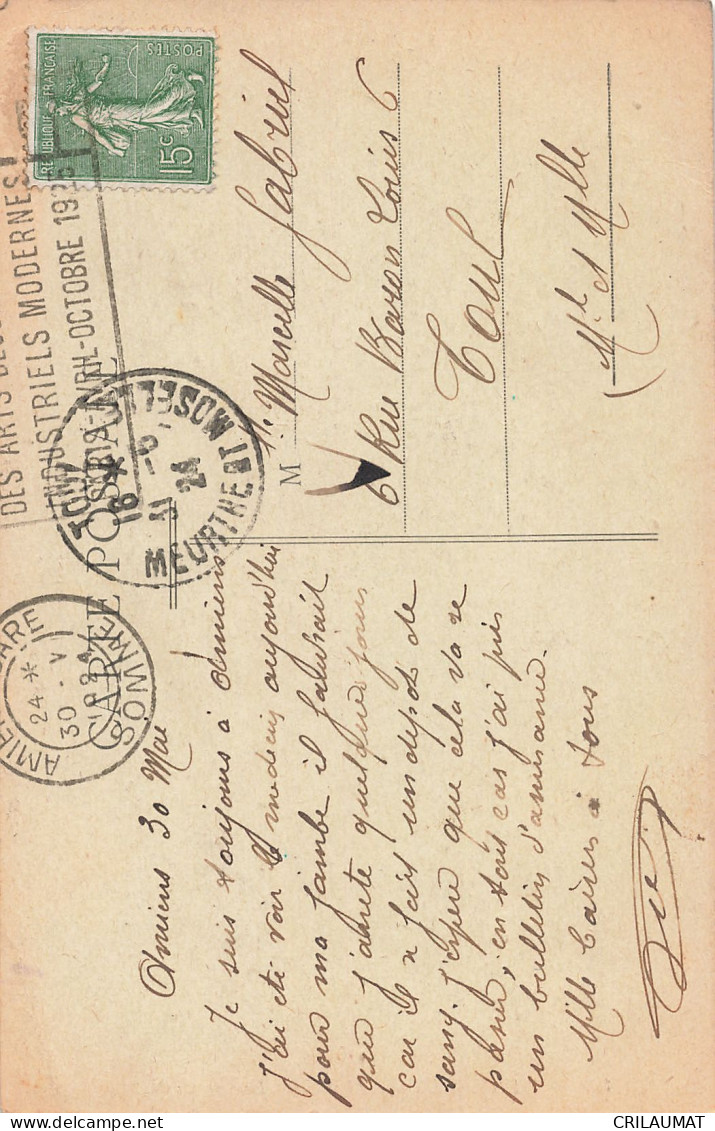 CARTE POSTALE
Amiens 30 Mai
Je suis toujours à Amiens
J'ai été voir le medecin aujourd'hui
pour ma jambe il faudrait
que j'arrete quelques jours
car il a fais un depot de
sang. J'espere que cela va se
passer, en tous cas j'ai pris
un bulletin d'assurance.
Mille Baisers à tous
M
Marcelle Gabriel
6 Rue Baron Louis 6
Toul
(Mt et Mlle
REPUBLIQUE FRANÇAISE
POSTES
15c
DES ARTS
INDUSTRIELS MODERNES
PARIS-AVRIL-OCTOBRE 1925
TOUL
16 *
31 - 5
24
MEURTHE ET MOSELLE
AMIENS GARE
24 *
30 - V
SOMME
CRILAUMAT